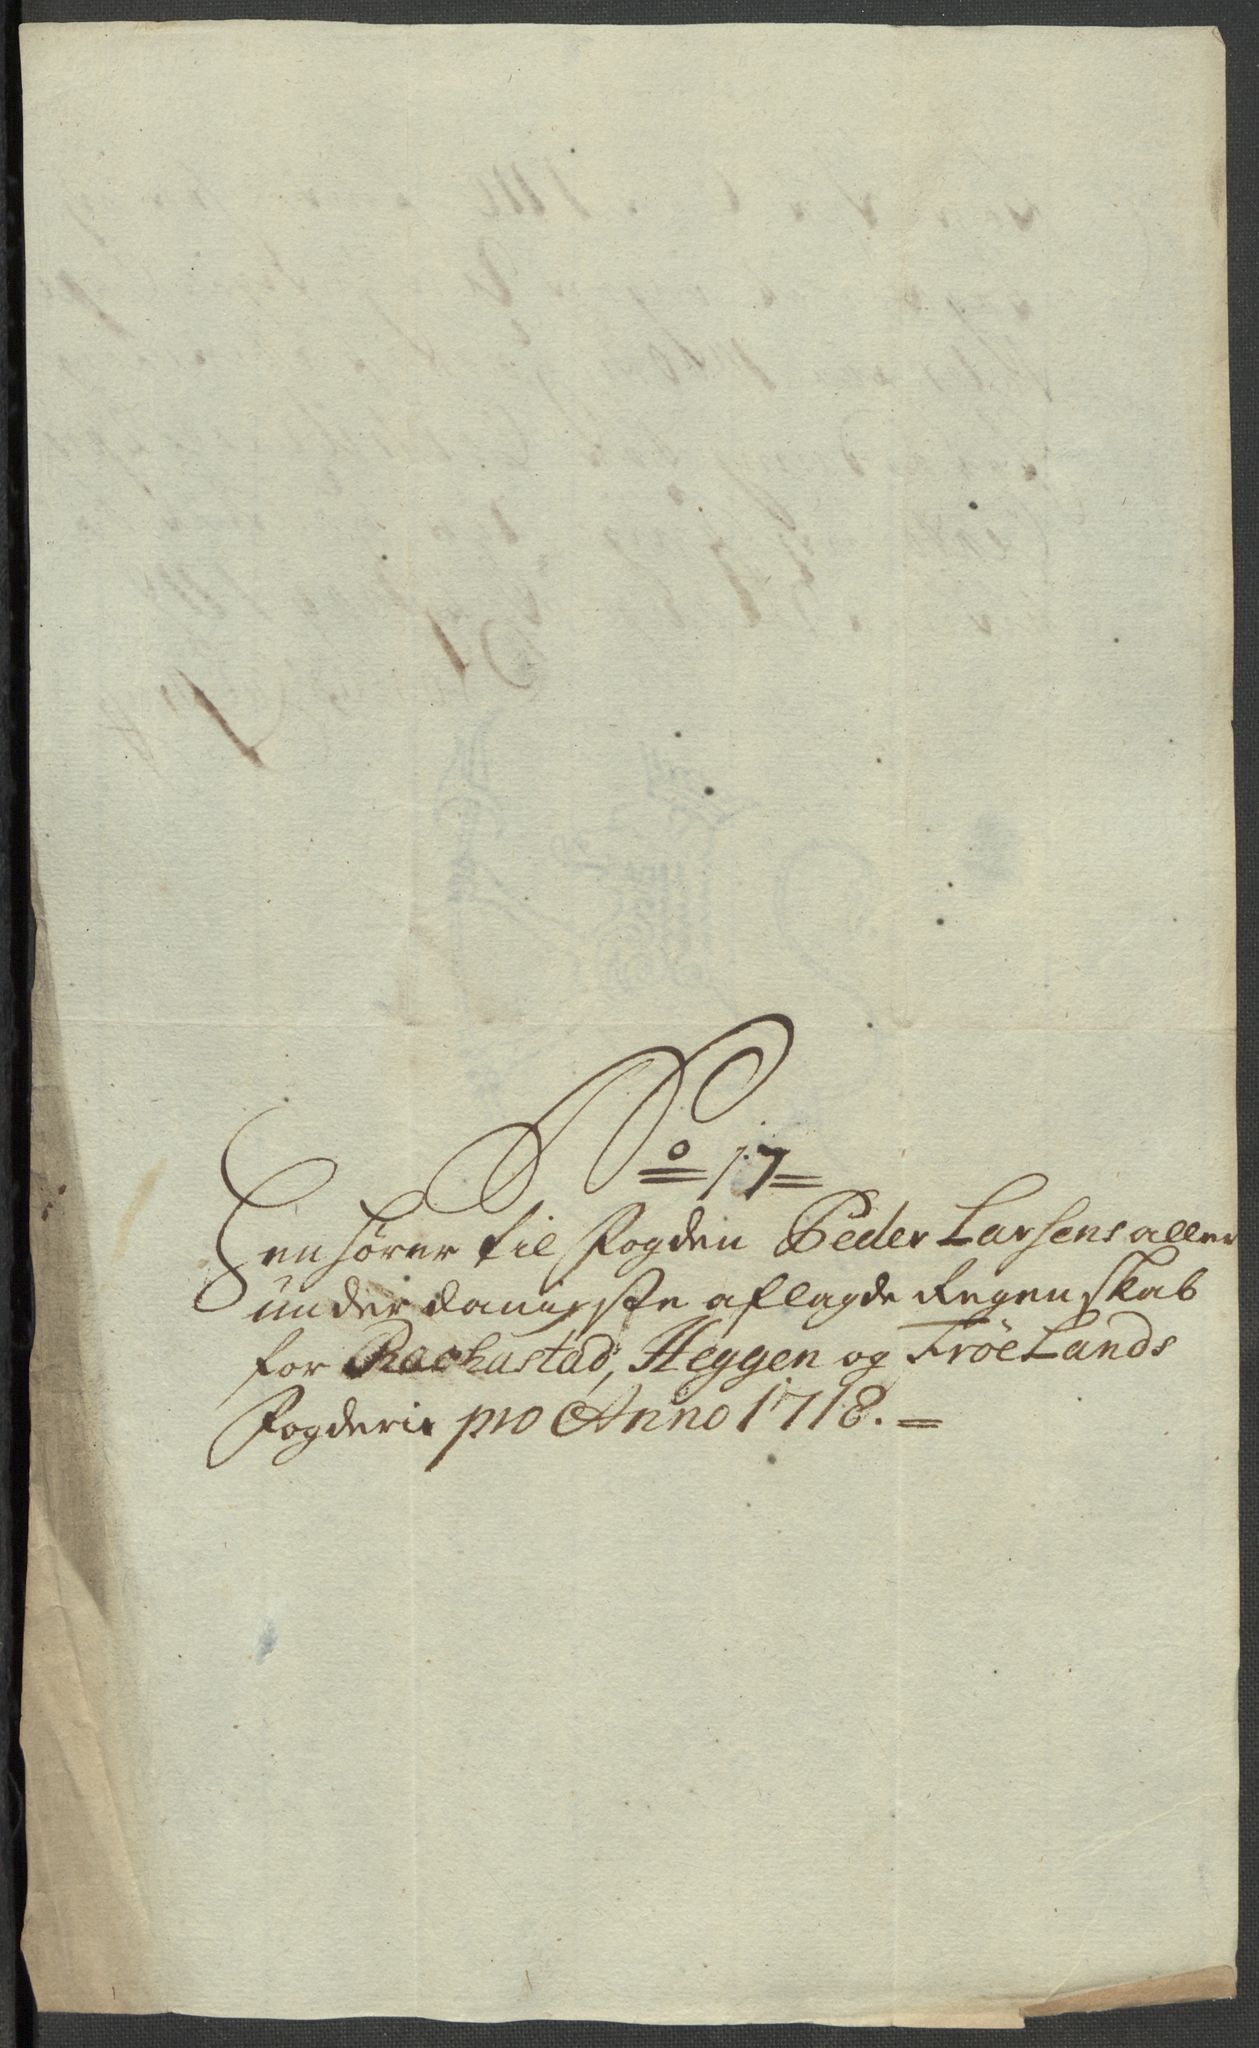 No 17
Henhører til Fogden Peder Larsens aller
underdanigste aflagde Regenskab
for Rachustad, Heggen og FröeLands
Fogderie pro Anno 1718.